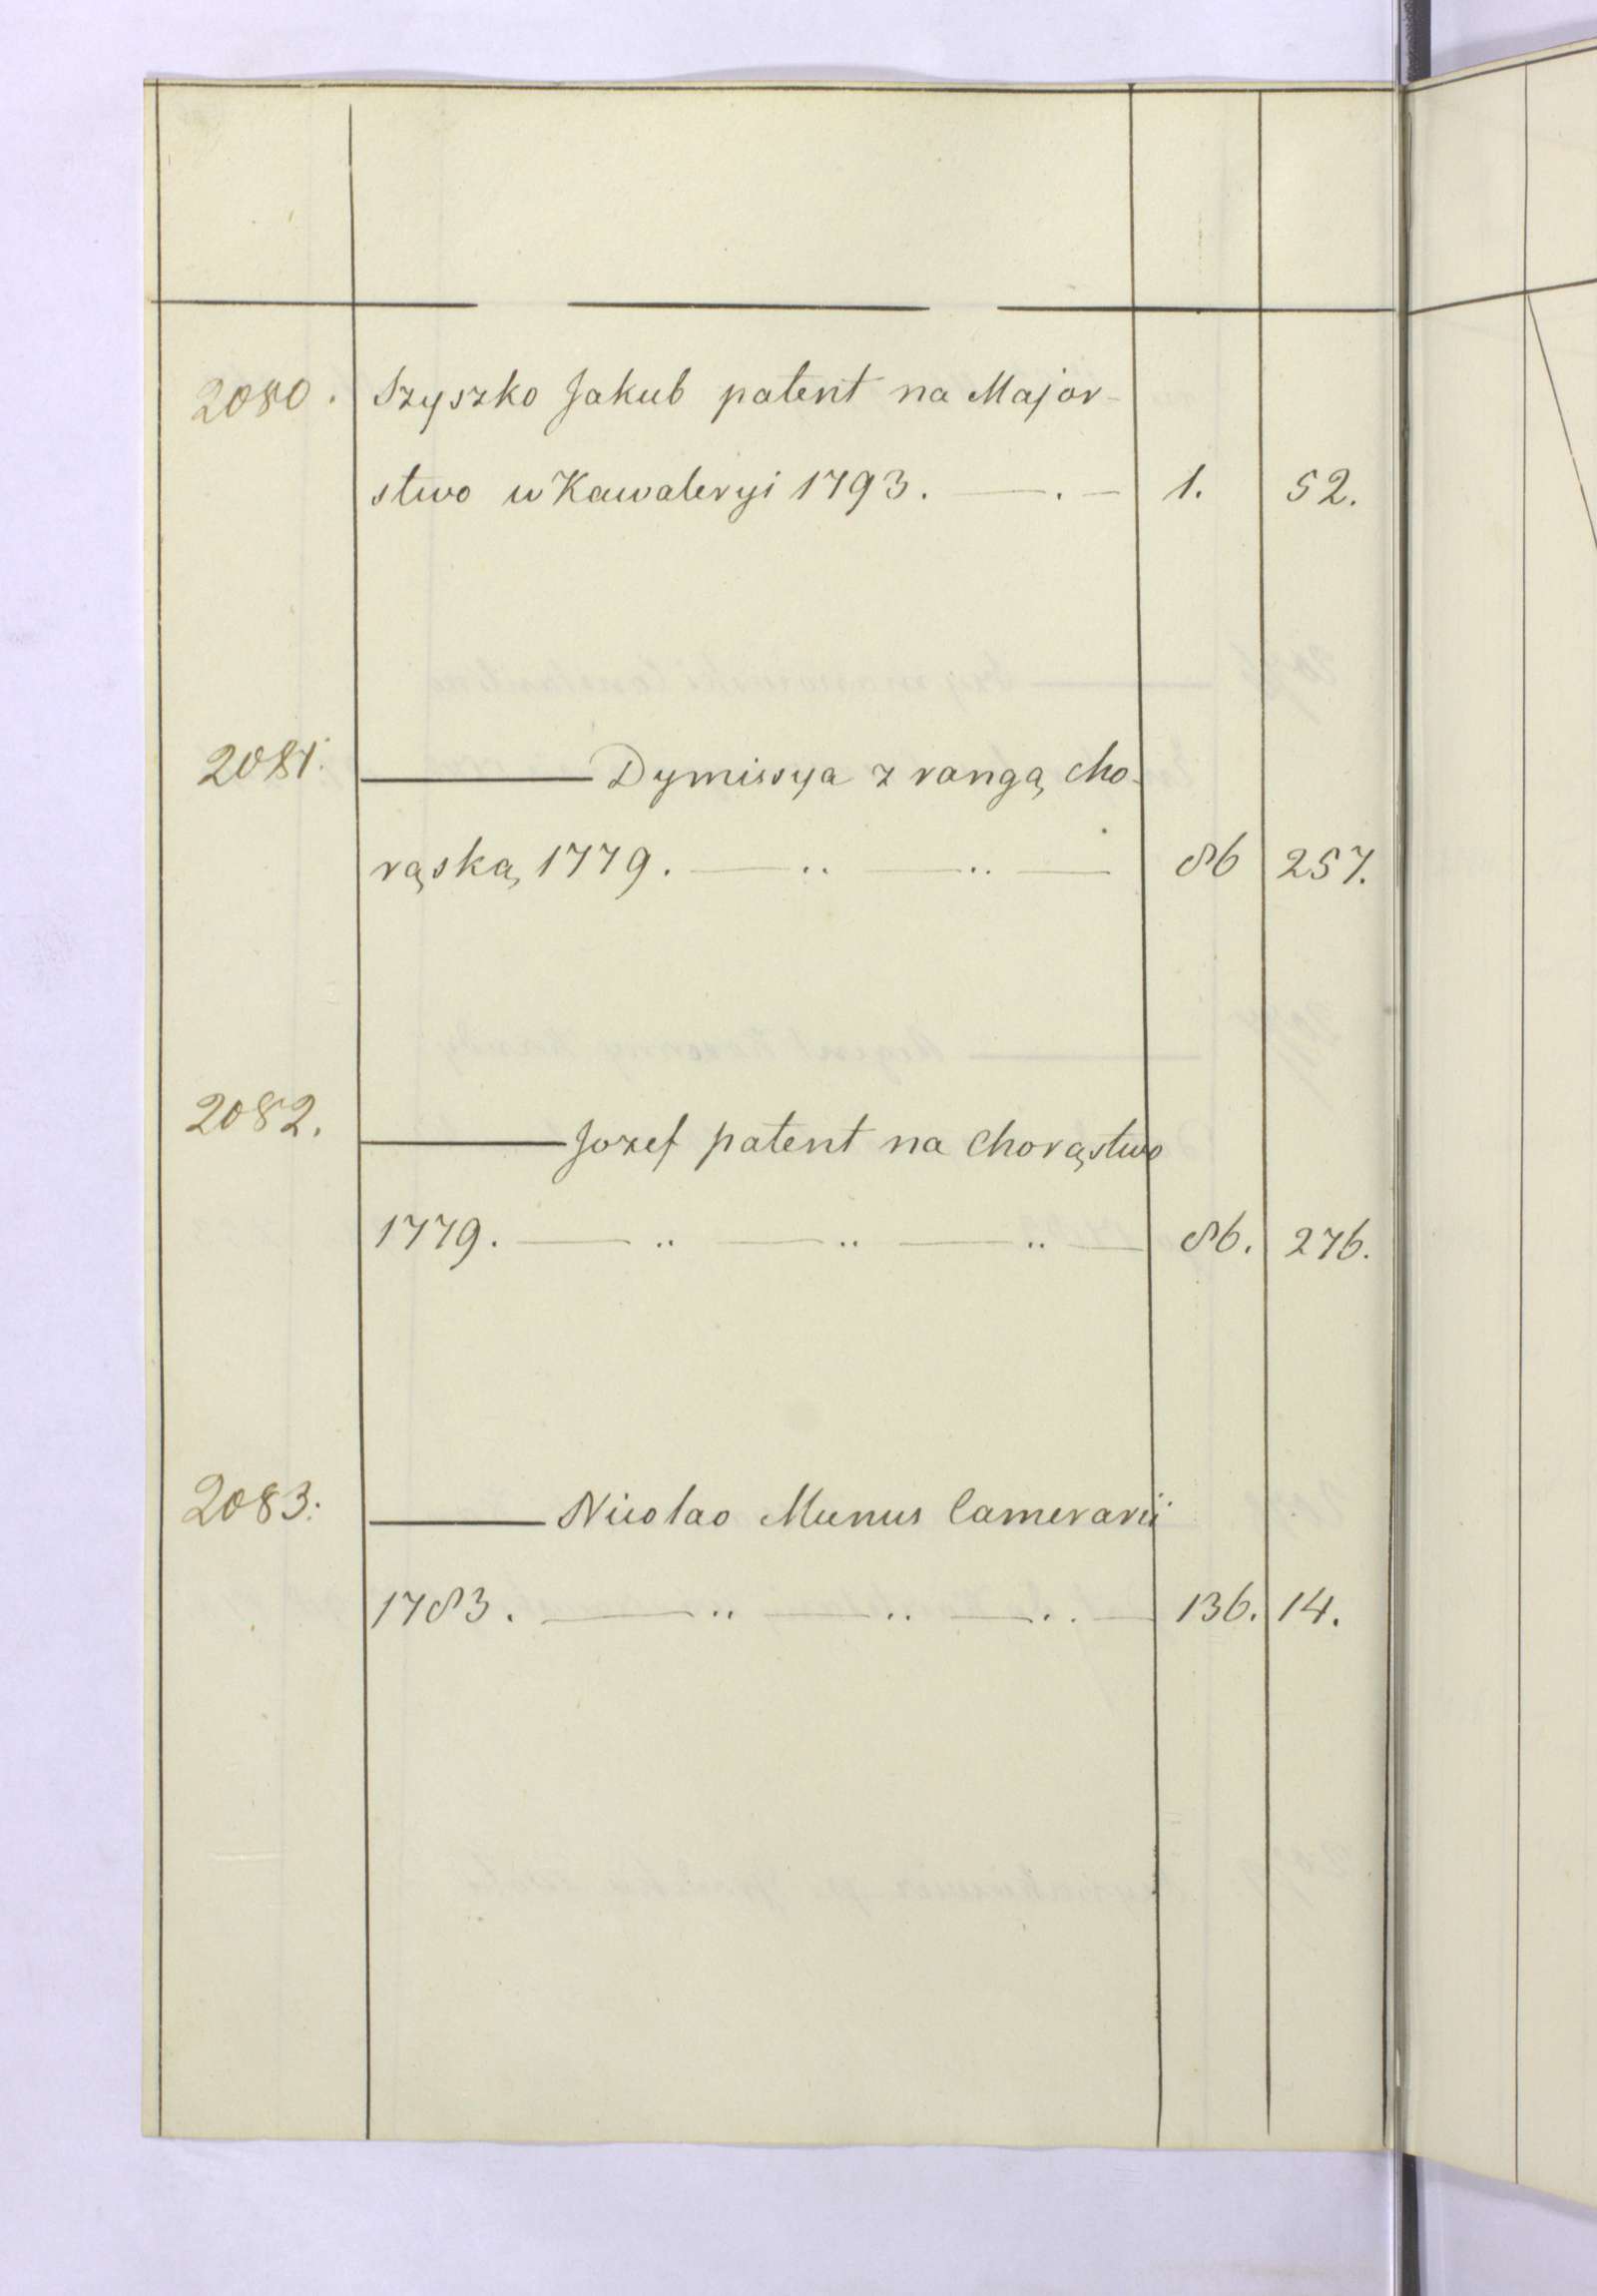 2080. Szyszko Jakub patent na Major-
stwo w Kawaleryi 1793. — . — 1. 52.
2081. — Dymissya z rangą cho-
rąską 1779. — .. — .. — 86 257.
2082. — Jozef patent na chorąstwo
1779. — .. — .. — .. — 86. 276.
2083. — Nicolao Munus Camerarii
1783. — .. — .. — .. — 136. 14.